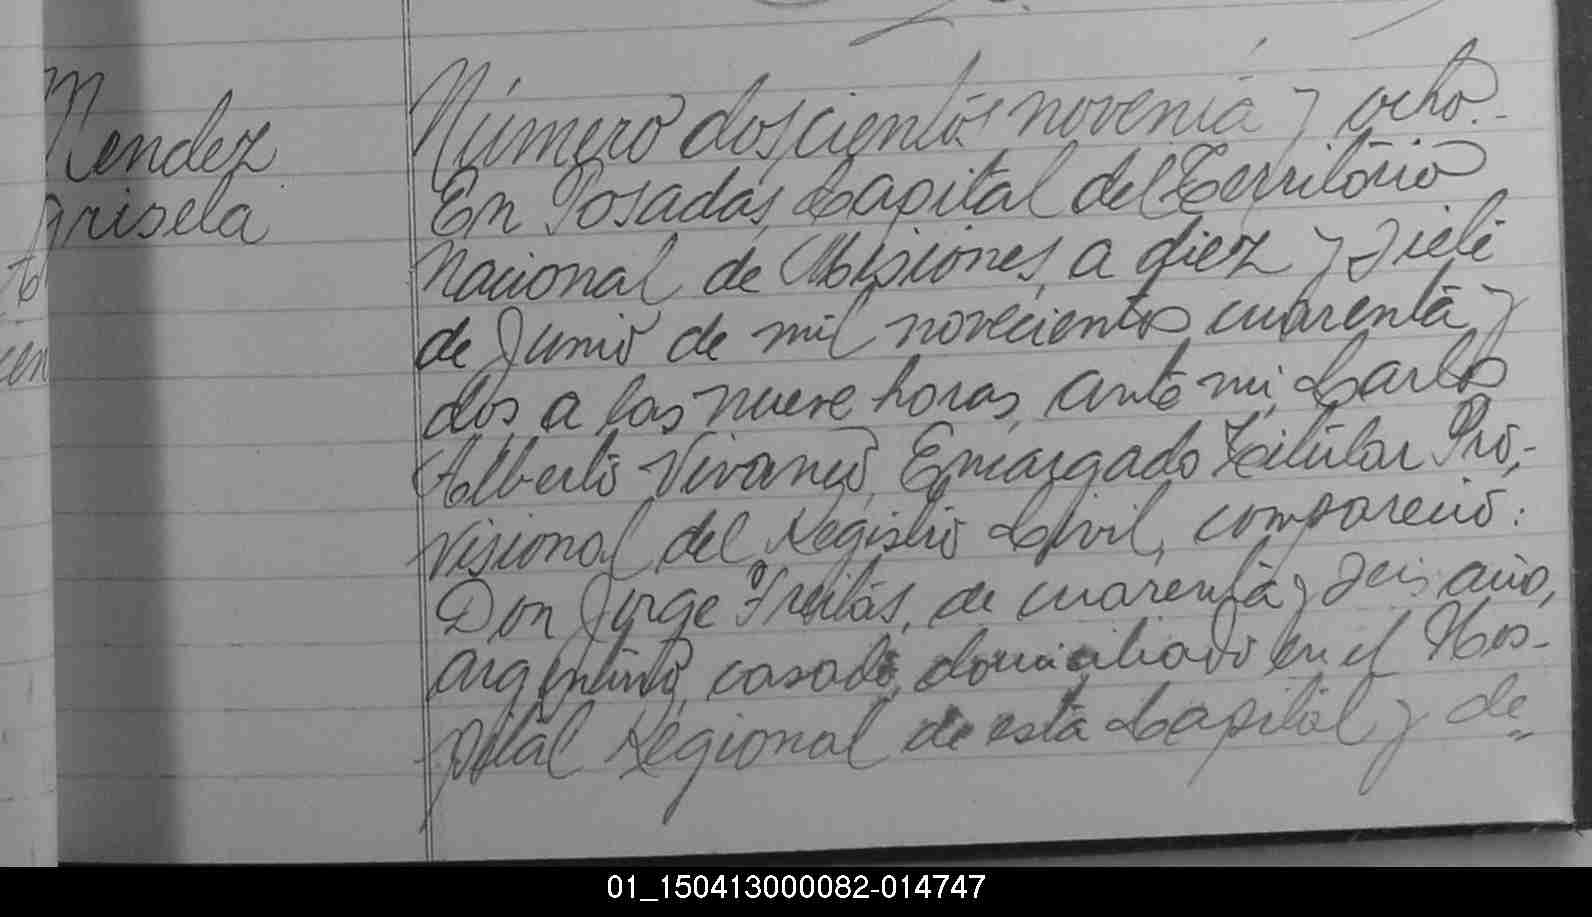 Mendez
Grisela
Número doscientos noventa y ocho.-
En Posadas, Capital del Territorio
Nacional de Misiones, a diez y siete
de Junio de mil novecientos cuarenta y
dos a las nueve horas, ante mi, Carlos
Alberto Vivanco, Encargado Titular Pro-
visional del Registro Civil, compareció:
Don Jorge Freitas, de cuarenta y seis años,
argentino, casado, domiciliado en el Hos-
pital Regional de esta Capital y de=
01_150413000082-014747